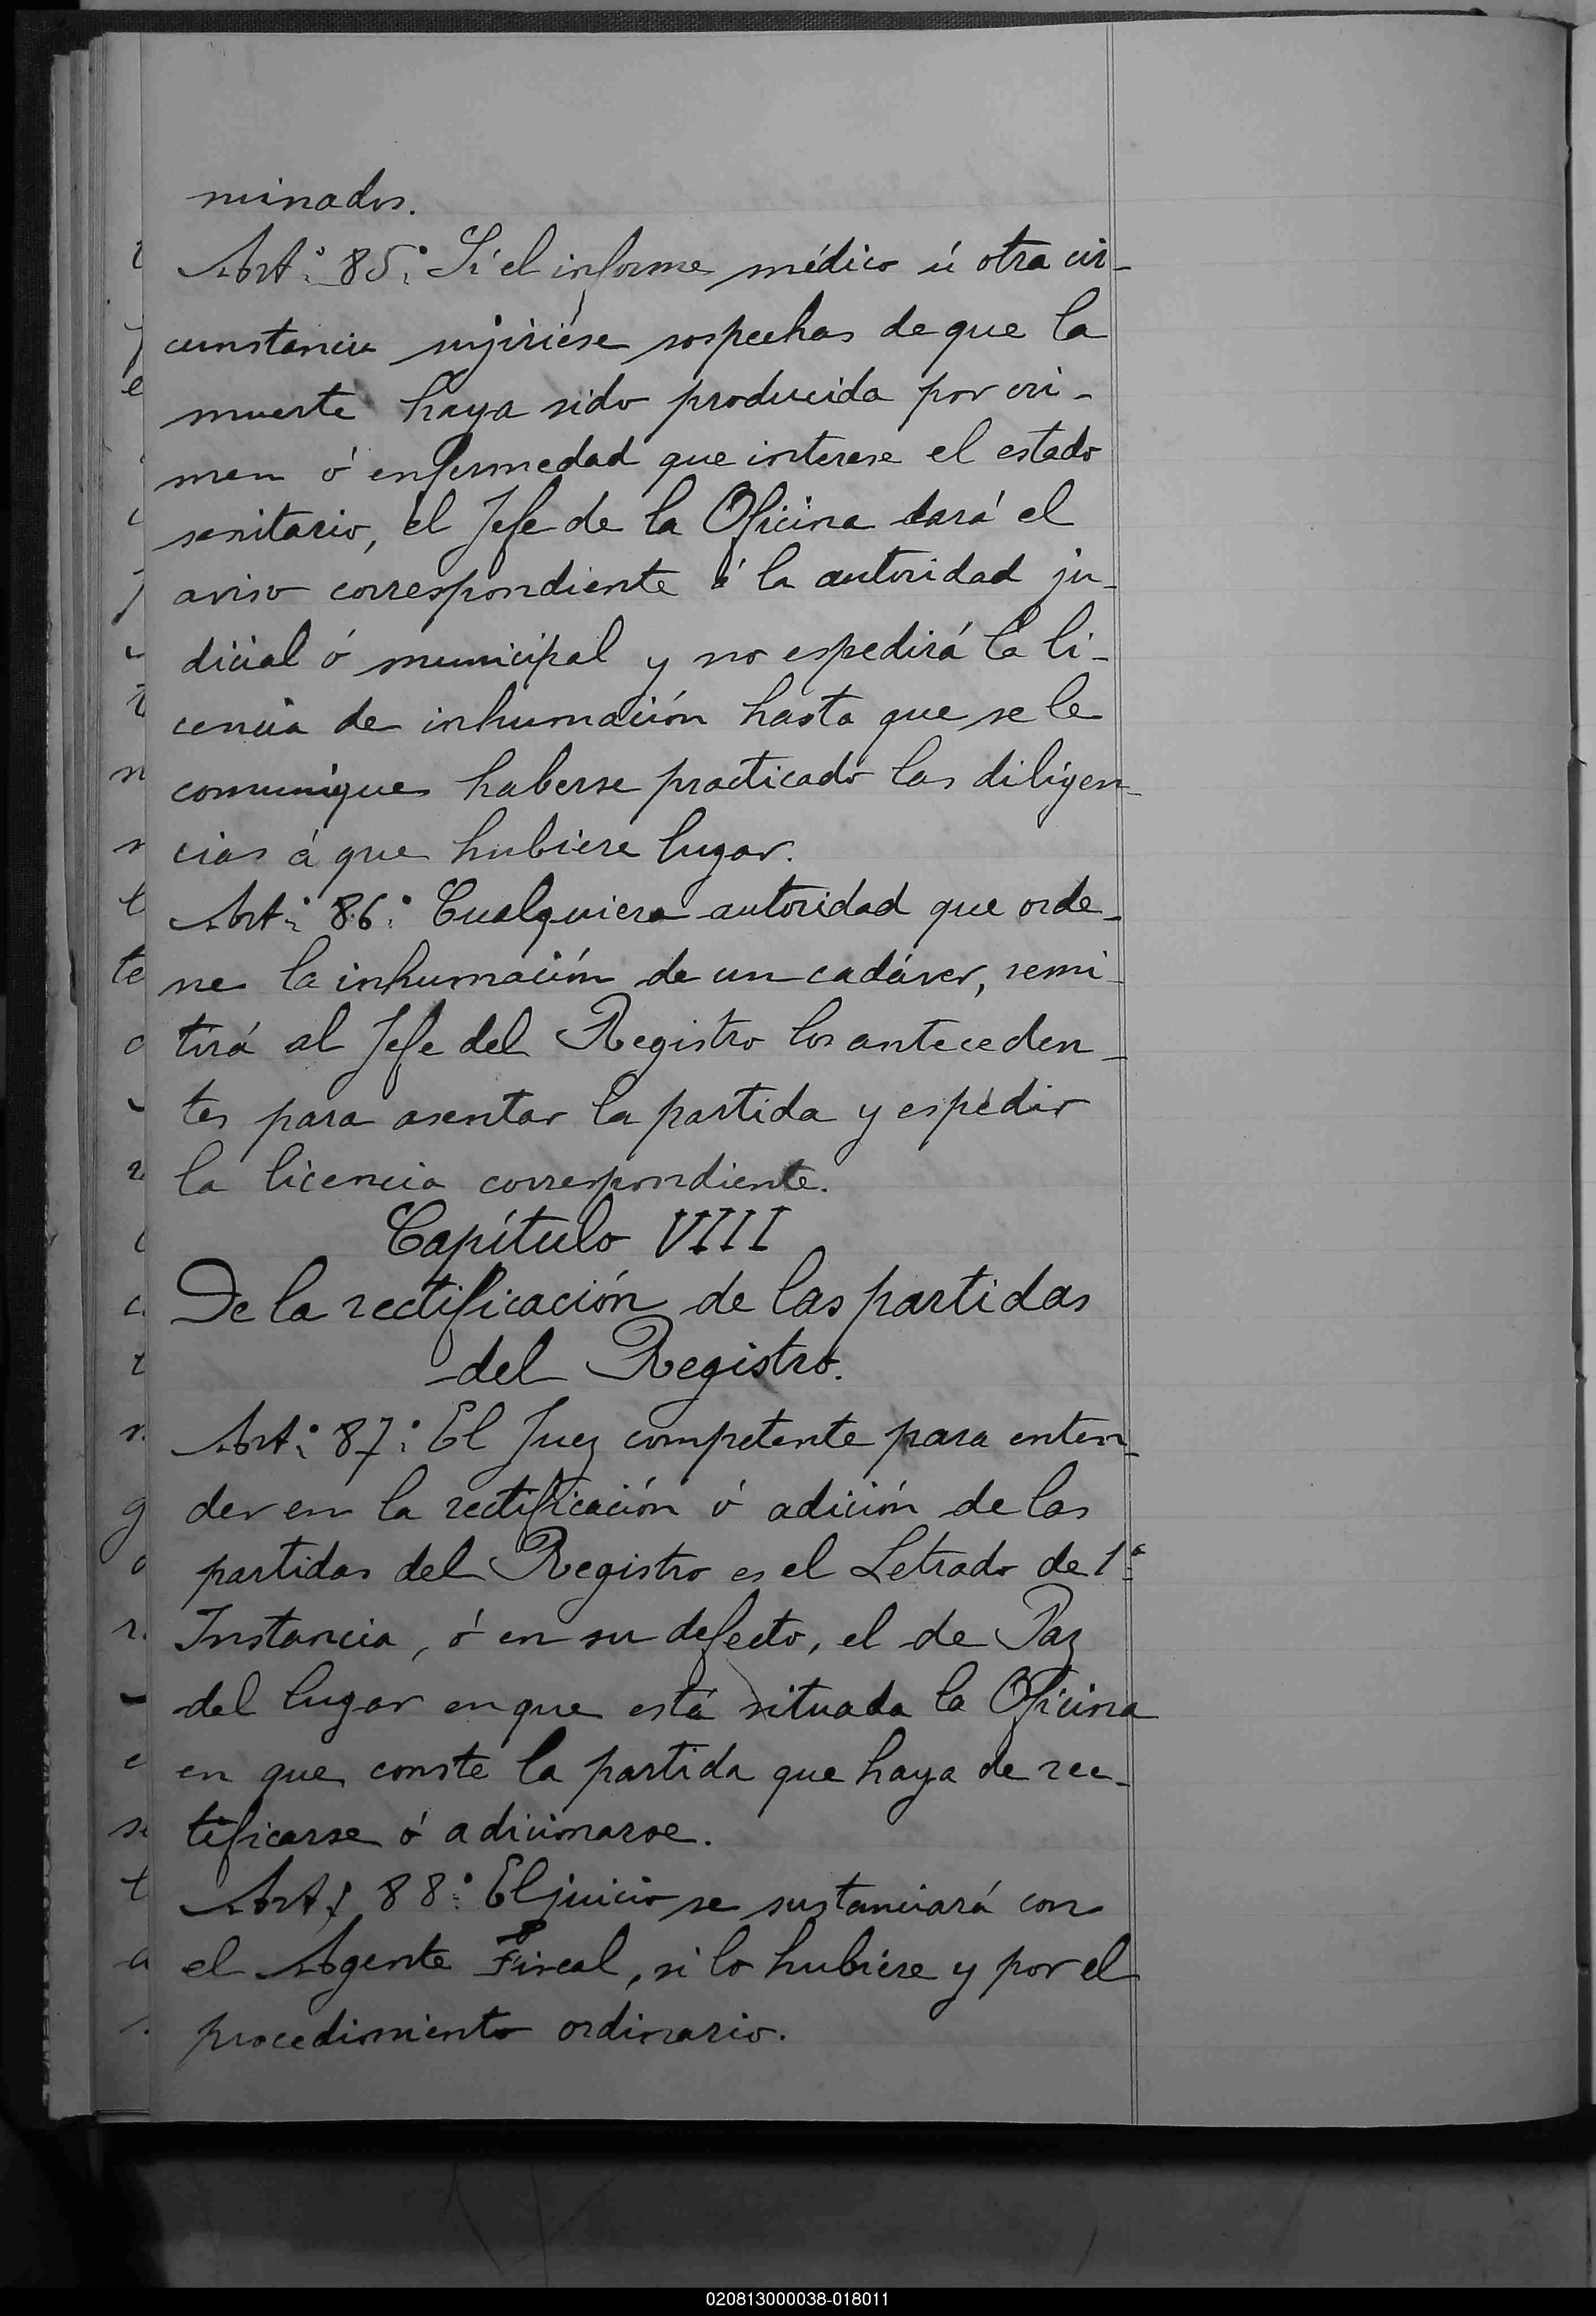 minados.
Art.º 85.º Si el informe médico ú otra cir-
cunstancia sujiriése sospechas de que la
muerte haya sido producida por cri-
men ó enfermedad que interese el estado
sanitario, el Jefe de la Oficina dará el
aviso correspondiente á la autoridad ju-
dicial ó municipal y no espedirá la li-
cencia de inhumación hasta que se le
comunique haberse practicado las diligen-
cias á que hubiere lugar.
Art.º 86.º Cualquiera autoridad que orde-
ne la inhumación de un cadáver, remi-
tirá al Jefe del Registro los anteceden-
tes para asentar la partida y espedir
la licencia correspondiente.
Capítulo VIII
De la rectificación de las partidas
del Registro.
Art.º 87.º El Juez competente para enten-
der en la rectificación ó adición de las
partidas del Registro es el Letrado de 1.ª
Instancia, ó en su defecto, el de Paz
del lugar en que está situada la Oficina
en que conste la partida que haya de rec-
tificarse ó adicionarse.
Art.º 88.º El juicio se sustanciará con
el Agente Fiscal, si lo hubiere y por el
procedimiento ordinario.
020813000038-018011